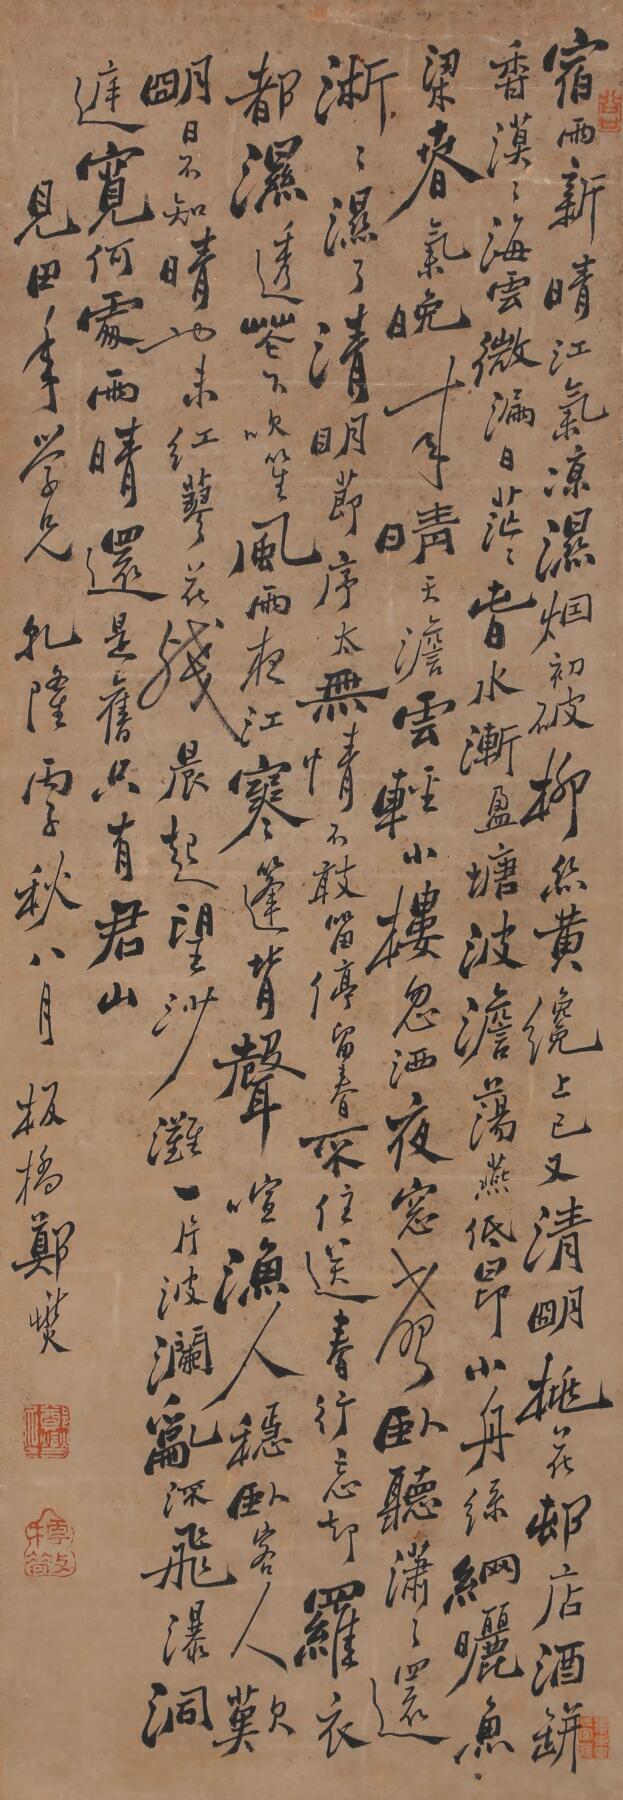 宿雨新晴江氣凉濕烟初破柳絲黄纔上已又清明桃花邨店酒缾
香漠〻海雲微漏日茫〻春水漸盈塘波澹蕩燕低昂小舟絲網曬魚
梁春氣晚來晴天澹雲輕小樓忽洒夜窓聲臥聽瀟〻還
淅〻濕了清明節序太無情不肯留停留春不住送春行忘却羅衣
都濕透花下吹笙風雨夜江寒篷背聲喧漁人穩臥客人歎
明日不知晴也未紅蓼花殘晨起望沙灘一片波瀾亂流飛瀑洞
庭寬何處雨晴還是舊只有君山
見田年學兄 乾隆丙子秋八月 板橋鄭燮